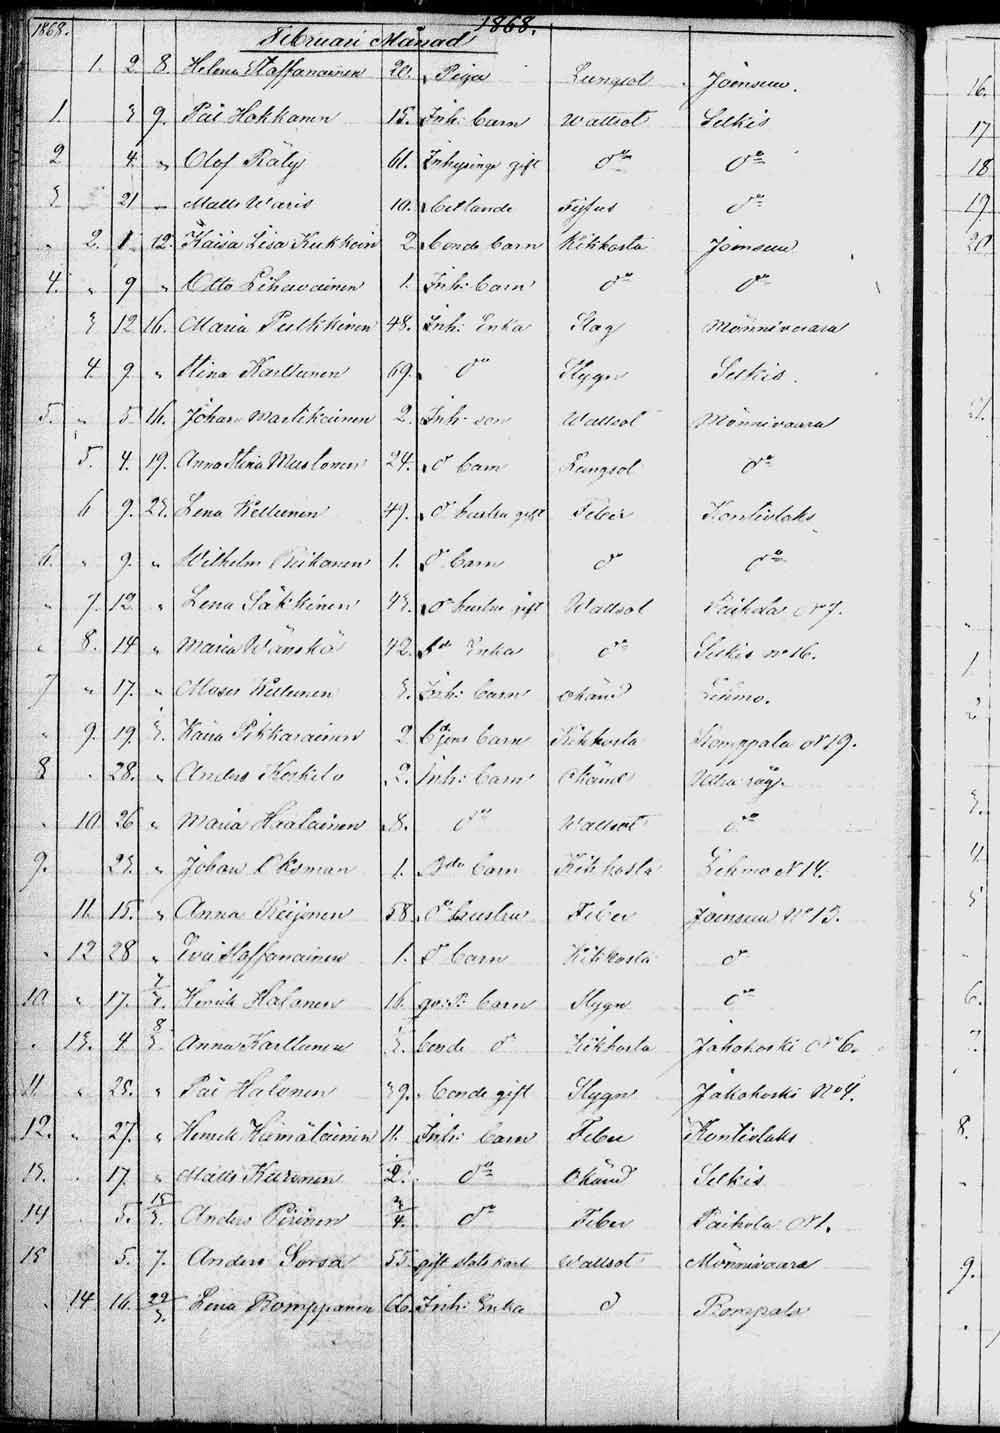 1868. 1868.
Februari Månad
1. 2 8. Helena Staffanainen 20. Piga Lungsot Joensuu.
1. 3 9. Pål Hakkanen 15. Inh: barn Wattsot Selkis
2 4. " Olof Räly 61. Inhysinge gift do do
3 21 " Matts Waris 10. bettlande Tyfus do
" 2. 1 12. Kaisa Lisa Kukkoin 2 bonde barn Kikhosta Joensuu
4. " 9 " Otto Lihavainen 1. Inh: barn do do
3 12 16. Maria Pulkkinen 48. Inh: Enka Slag Mönnivaara
4. 9. " Stina Karttunen 69. do Stygn Selkis.
5. " 5 16. Johan Martikainen 2. Inh: son Wattsot Mönnivaara
5. 4. 19. Anna Stina Mustonen 24. do barn Lungsot do
6 9. 23. Lena Kettunen 49. do hustru gift Feber Kontiolaks
6. " 9. " Wilhelm 1. do barn do do
" 7. 12. " Lena Säkkinen 43. do hustru gift Wattsot Paihola No 7.
" 8. 14 " Maria Wänskä 42. Enka do Selkis No 16.
7 " 17. " Moses Kettunen 3. Inh: barn okänd Lehmo.
" 9. 19. 3. Kaisa Pikkarainen 2. barn Kikhosta Romppala No 19.
8 " 28. " Anders Koskelo 2. Inh: barn okänd Utra såg.
" 10 26 " Maria 8. do Wattsot do
9. 23. " Johan Oksman 1. barn Kikhosta Lehmo No 14.
11. 15. " Anna Reijonen 58. do hustru Feber Joensuu No 13.
" 12 28 " Eva Staffanainen 1. do barn Kikhosta do
10. " 17. 7/3. Henrik Halonen 16. barn Stygn do
" 13. 4. 8/3. Anna Karttunen 3. bonde do Kikhosta Jakokoski No 6.
11. " 25. " Pål Halonen 39. bonde gift Stygn Jakokoski No 4.
12. " 27. " Henrik Hämäläinen 11. Inh: barn Feber Kontiolaks
13. " 17. " Matts Kuronen 2. do okänd Selkis
14 5. 15/3. Anders Pironen 3/4. do Feber Paihola No 1.
15 5. 7. Anders Sorsa 55. gift Wattsot Mönnivaara
" 14 16. 22/3. Lena Romppanen 66. Inh: Enka do Rompala
16.
17
18
19
20
21.
1
2
3.
4
5
6.
7.
8.
9.